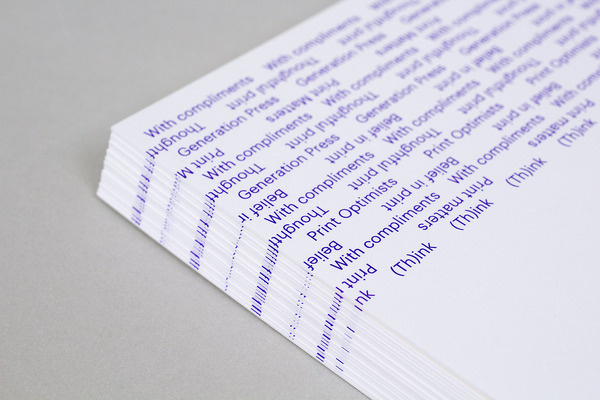 With compliments With compliments
Thoughtful print
Generation Press Generation Press
Print Matters
With compliments With compliments
Thoughtful print
Generation Press Generation Press Generation Press
Belief in print
With compliments With compliments
Thoughtful print
Print Optimists Print Optimists Print Optimists
Belief in print
With compliments With compliments
Print matters Print matters
ink (Th)ink (Th)ink (Th)ink (Th)ink